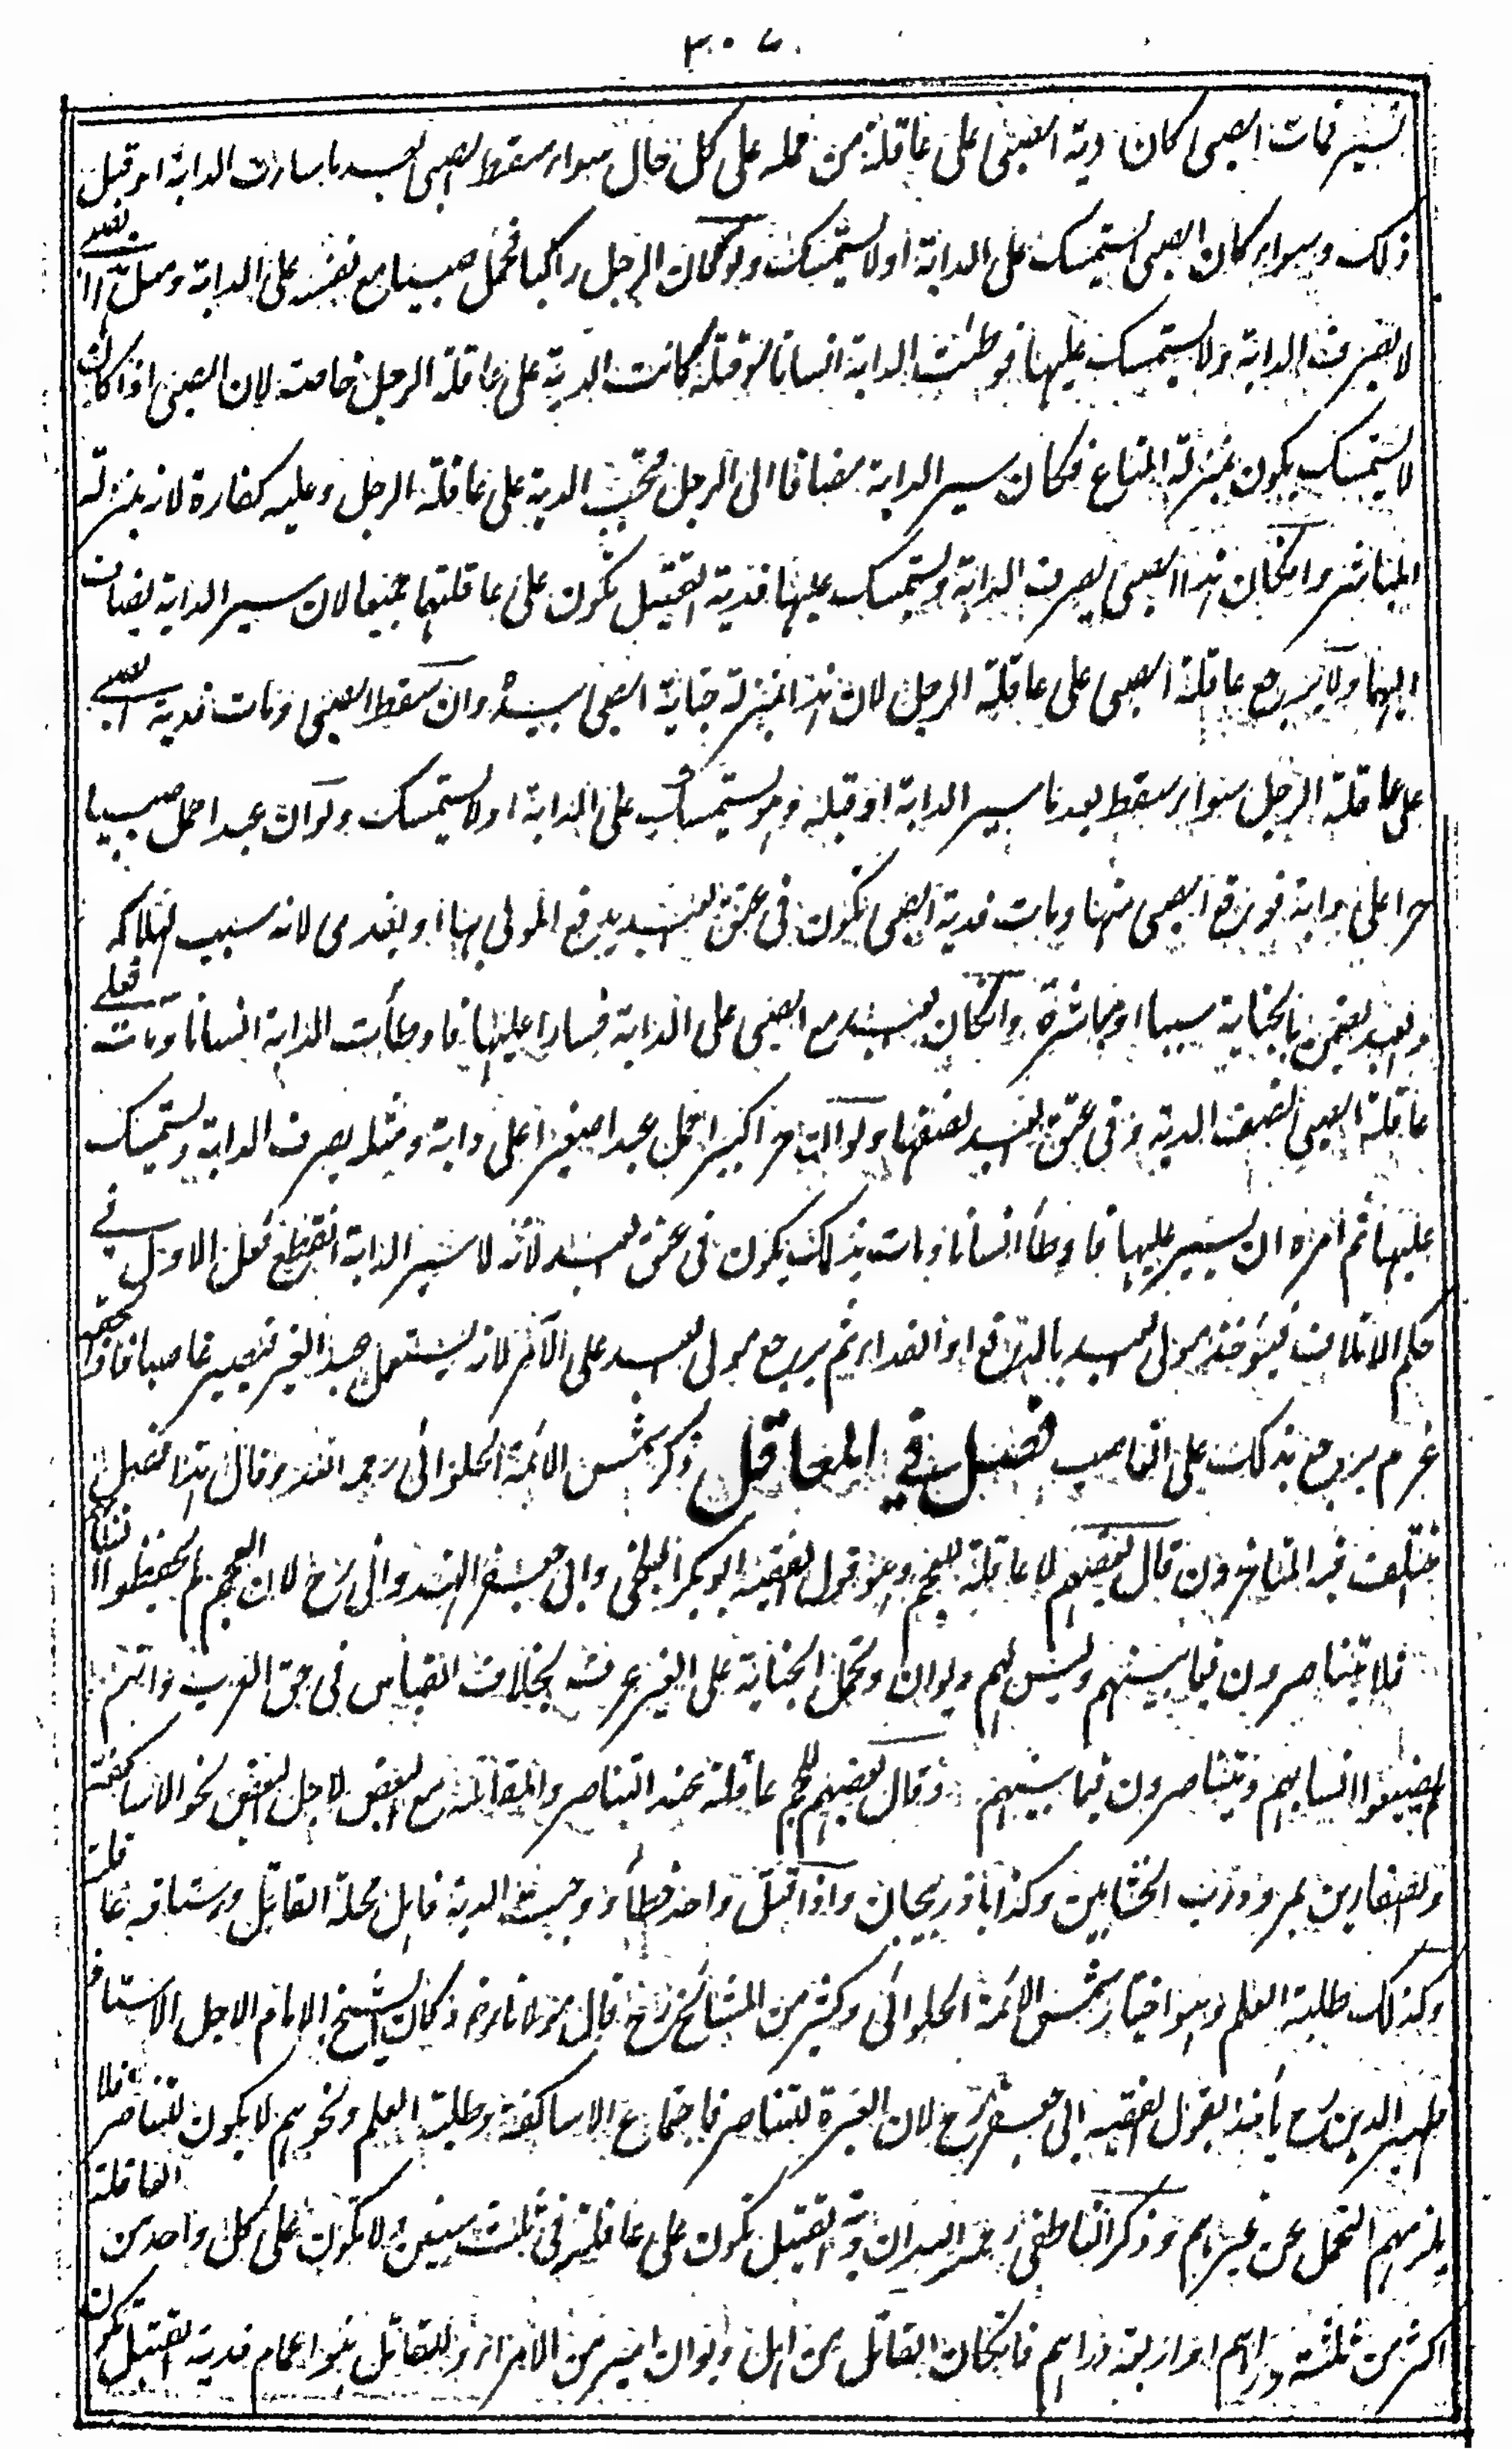 ٣٠٧
تسير فمات الصبي كان دية الصبي على عاقلة من حمله على كل حال سواء سقط الصبي بعد ما سارت الدابة او قبل
ذلك وسواء كان الصبي يستمسك على الدابة او لا يستمسك ولو كان الرجل راكبا فحمل صبيا مع نفسه على الدابة ومثل هذا الصبي
لا يصرف الدابة ولا يستمسك عليها فوطئت الدابة انسانا فقتلته كانت الدية على عاقلة الرجل خاصة لان الصبي اذا كان
لا يستمسك يكون بمنزلة المتاع فكان سير الدابة مضافا الى الرجل فتجب الدية على عاقلة الرجل وعليه كفارة لانه بمنزلة
المباشر وان كان هذا الصبي يصرف الدابة ويستمسك عليها فدية القتيل تكون على عاقلتهما جميعا لان سير الدابة يضاف
اليهما ولا يرجع عاقلة الصبي على عاقلة الرجل لان هذا بمنزلة جناية الصبي بيده وان سقط الصبي ومات فدية الصبي
على عاقلة الرجل سواء سقط بعد ما سير الدابة او قبله وهو يستمسك على الدابة او لا يستمسك ولو ان عبدا حمل صبيا
حرا على دابة فوقع الصبي منها ومات فدية الصبي تكون في عنق العبد يدفع المولى بها او يفدي لانه سبب لهلاكه
والعبد يضمن بالجناية سببا او مباشرة وان كان العبد مع الصبي على الدابة فسارا عليها فاوطأت الدابة انسانا ومات فعلى
عاقلة الصبي نصف الدية وفي عنق العبد نصفها ولو ان حرا كبيرا حمل عبدا صغيرا على دابة ومثله يصرف الدابة ويستمسك
عليها ثم امره ان يسير عليها فاوطأ انسانا ومات بذلك يكون في عنق العبد لانه لما سير الدابة انقطع فعل الاول في
حكم الاتلاف فيؤخذ مولى العبد بالدفع او الفداء ثم يرجع مولى العبد على الآمر لانه يستعمل عبد الغير فيصير غاصبا فاذا لحقه
غرم يرجع بذلك على الغاصب فصل في المعاقل ذكر شمس الائمة الحلوائي رحمه الله وقال هذا فصل
اختلف فيه المتاخرون قال بعضهم لا عاقلة للعجم وهو قول الفقيه ابو بكر البلخي وابي جعفر الهندواني رح لان العجم لم يحفظوا انسابهم
فلا يتناصرون فيما بينهم وليس لهم ديوان وتحمل الجناية على الغير عرفت بخلاف القياس في حق العرب وانهم
لم يضيعوا انسابهم ويتناصرون فيما بينهم وقال بعضهم للعجم عاقلة عند التناصر والمقاتلة مع البعض لاجل البعض نحو الاساكفة
والصفارين بمرو ودرب الخشابين وكذا باذربيجان واذا قتل واحد خطأ ووجبت الدية فاهل محلة القاتل ورستاقه عاقلته
وكذلك طلبة العلم وهو اختيار شمس الائمة الحلوائي وكثير من المشائخ رح قال مولانا رض وكان الشيخ الامام الاجل الاستاذ
ظهير الدين رح يأخذ بقول الفقيه ابي جعفر رح لان العبرة للتناصر فاجتماع الاساكفة وطلبة العلم ونحوهم لا يكون للتناصر فلا
يلزمهم التحمل عن غيرهم وذكر الناطفي رحمه الله ان دية القتيل تكون على عاقلته في ثلث سنين ولا تكون على كل واحد من العاقلة
اكثر من ثلثة دراهم او اربعة دراهم فان كان القاتل من اهل ديوان امير من الامراء وللقاتل بنو اعمام فدية القتيل تكون